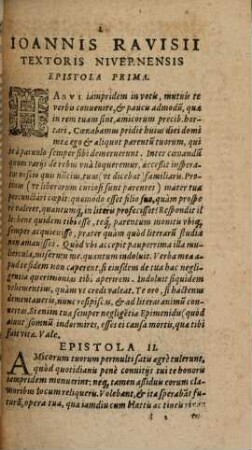 IOANNIS RAVISII
TEXTORIS NIVERNENSIS
EPISTOLA PRIMA.
iampridem in votis, mutuis te
verbis convenire, & paucis admodũ, quæ
in rem tuam sint, amicorum precib. hor-
tari. Cœnabamus pridie huius diei domi
meæ ego & aliquot parentũ tuorum, qui
te à parvulo semper sibi demeruerunt. Inter cœnandũ
quum varijs de rebus unà loqueremur, accessit
nescio quis
Protinus (ut liberorum curiosi sunt parentes) mater tua
percunctari cœpit quomodo esset filio suo, quàm prospe-
rè valeret, quantumq; in literis profecisset. Respondit il-
le bene quidem tibi esse, teq; parentum monitis
semper acquievisse, præter quàm quòd literarũ studia
non amavisses. Quod ubi accepit pauperrima illa mu-
liercula, misertum me quantum indoluit. Verba mea
eludere siquidem non caperent, si eiusdem de tua hac negli-
gentia querimonias tibi aperirem. Indoluit siquidem
vehementius, quàm ut credi valeat. Te oro, si hactenus
dementaveris, nunc respiscas, & ad literas animũ con-
vertas. Si enim tua semper negligẽtia Epimenidis (quòd
aiunt) somnũ indormires, esses ei causa mortis, quæ tibi
fuit vitæ. Vale.
EPISTOLA II.
AMicorum tuorum permulti satis ægrè tulerunt,
quòd quotidianis penè convitijs tui te honoris
iampridem monuerint: neq; tamen assiduis eorum cla-
moribus locum reliqueris. Volebant, & ita sperabãt
futurũ, opera tua, qua iamdiu cum